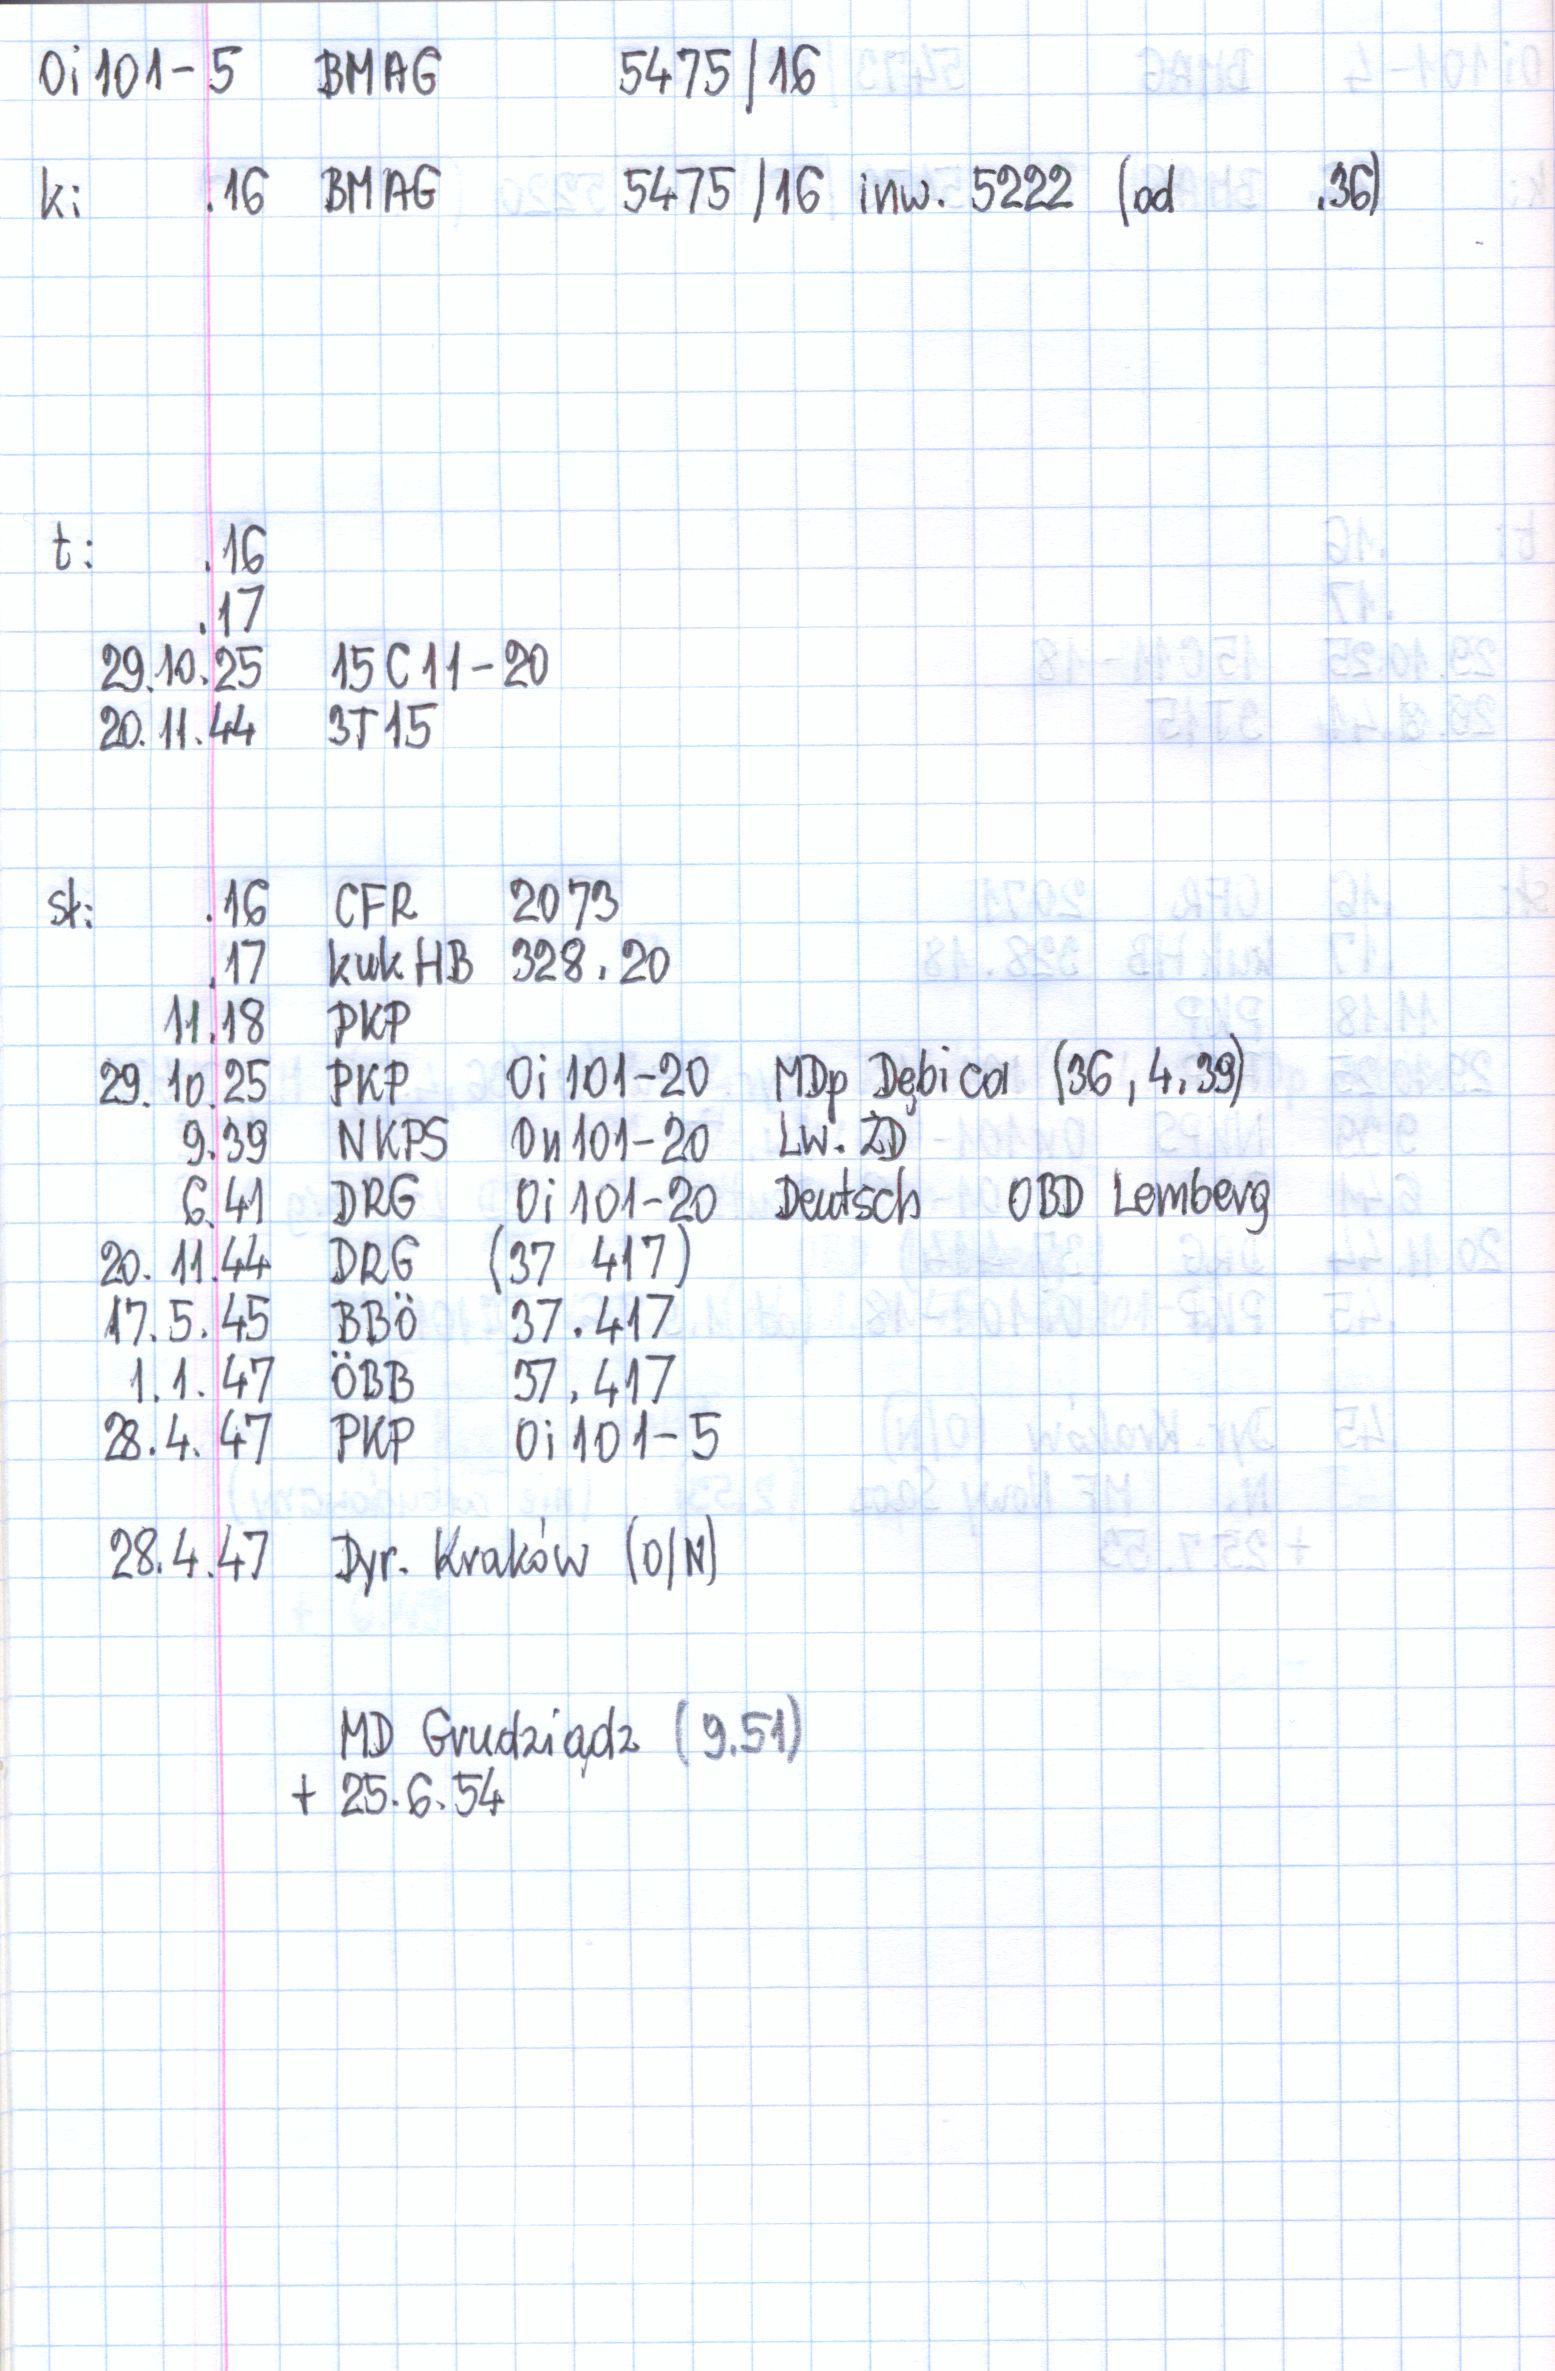 Oi101-5 BMAG 5475/16
k: .16 BMAG 5475/16 inw. 5222 (od .36)
t: .16
.17
29.10.25 15C11-20
20.11.44 3T15
sk: .16 CFR 2073
.17 kuk HB 328.20
11.18 PKP
29.10.25 PKP Oi101-20 MDp Dębica (36, 4.39)
9.39 NKPS Ои101-20 Lw. ŻD
6.41 DRG Oi101-20 Deutsch OBD Lemberg
20.11.44 DRG (37 417)
17.5.45 BBÖ 37.417
1.1.47 ÖBB 37.417
28.4.47 PKP Oi101-5
28.4.47 Dyr. Kraków (O/N)
MD Grudziądz (9.51)
+ 25.6.54